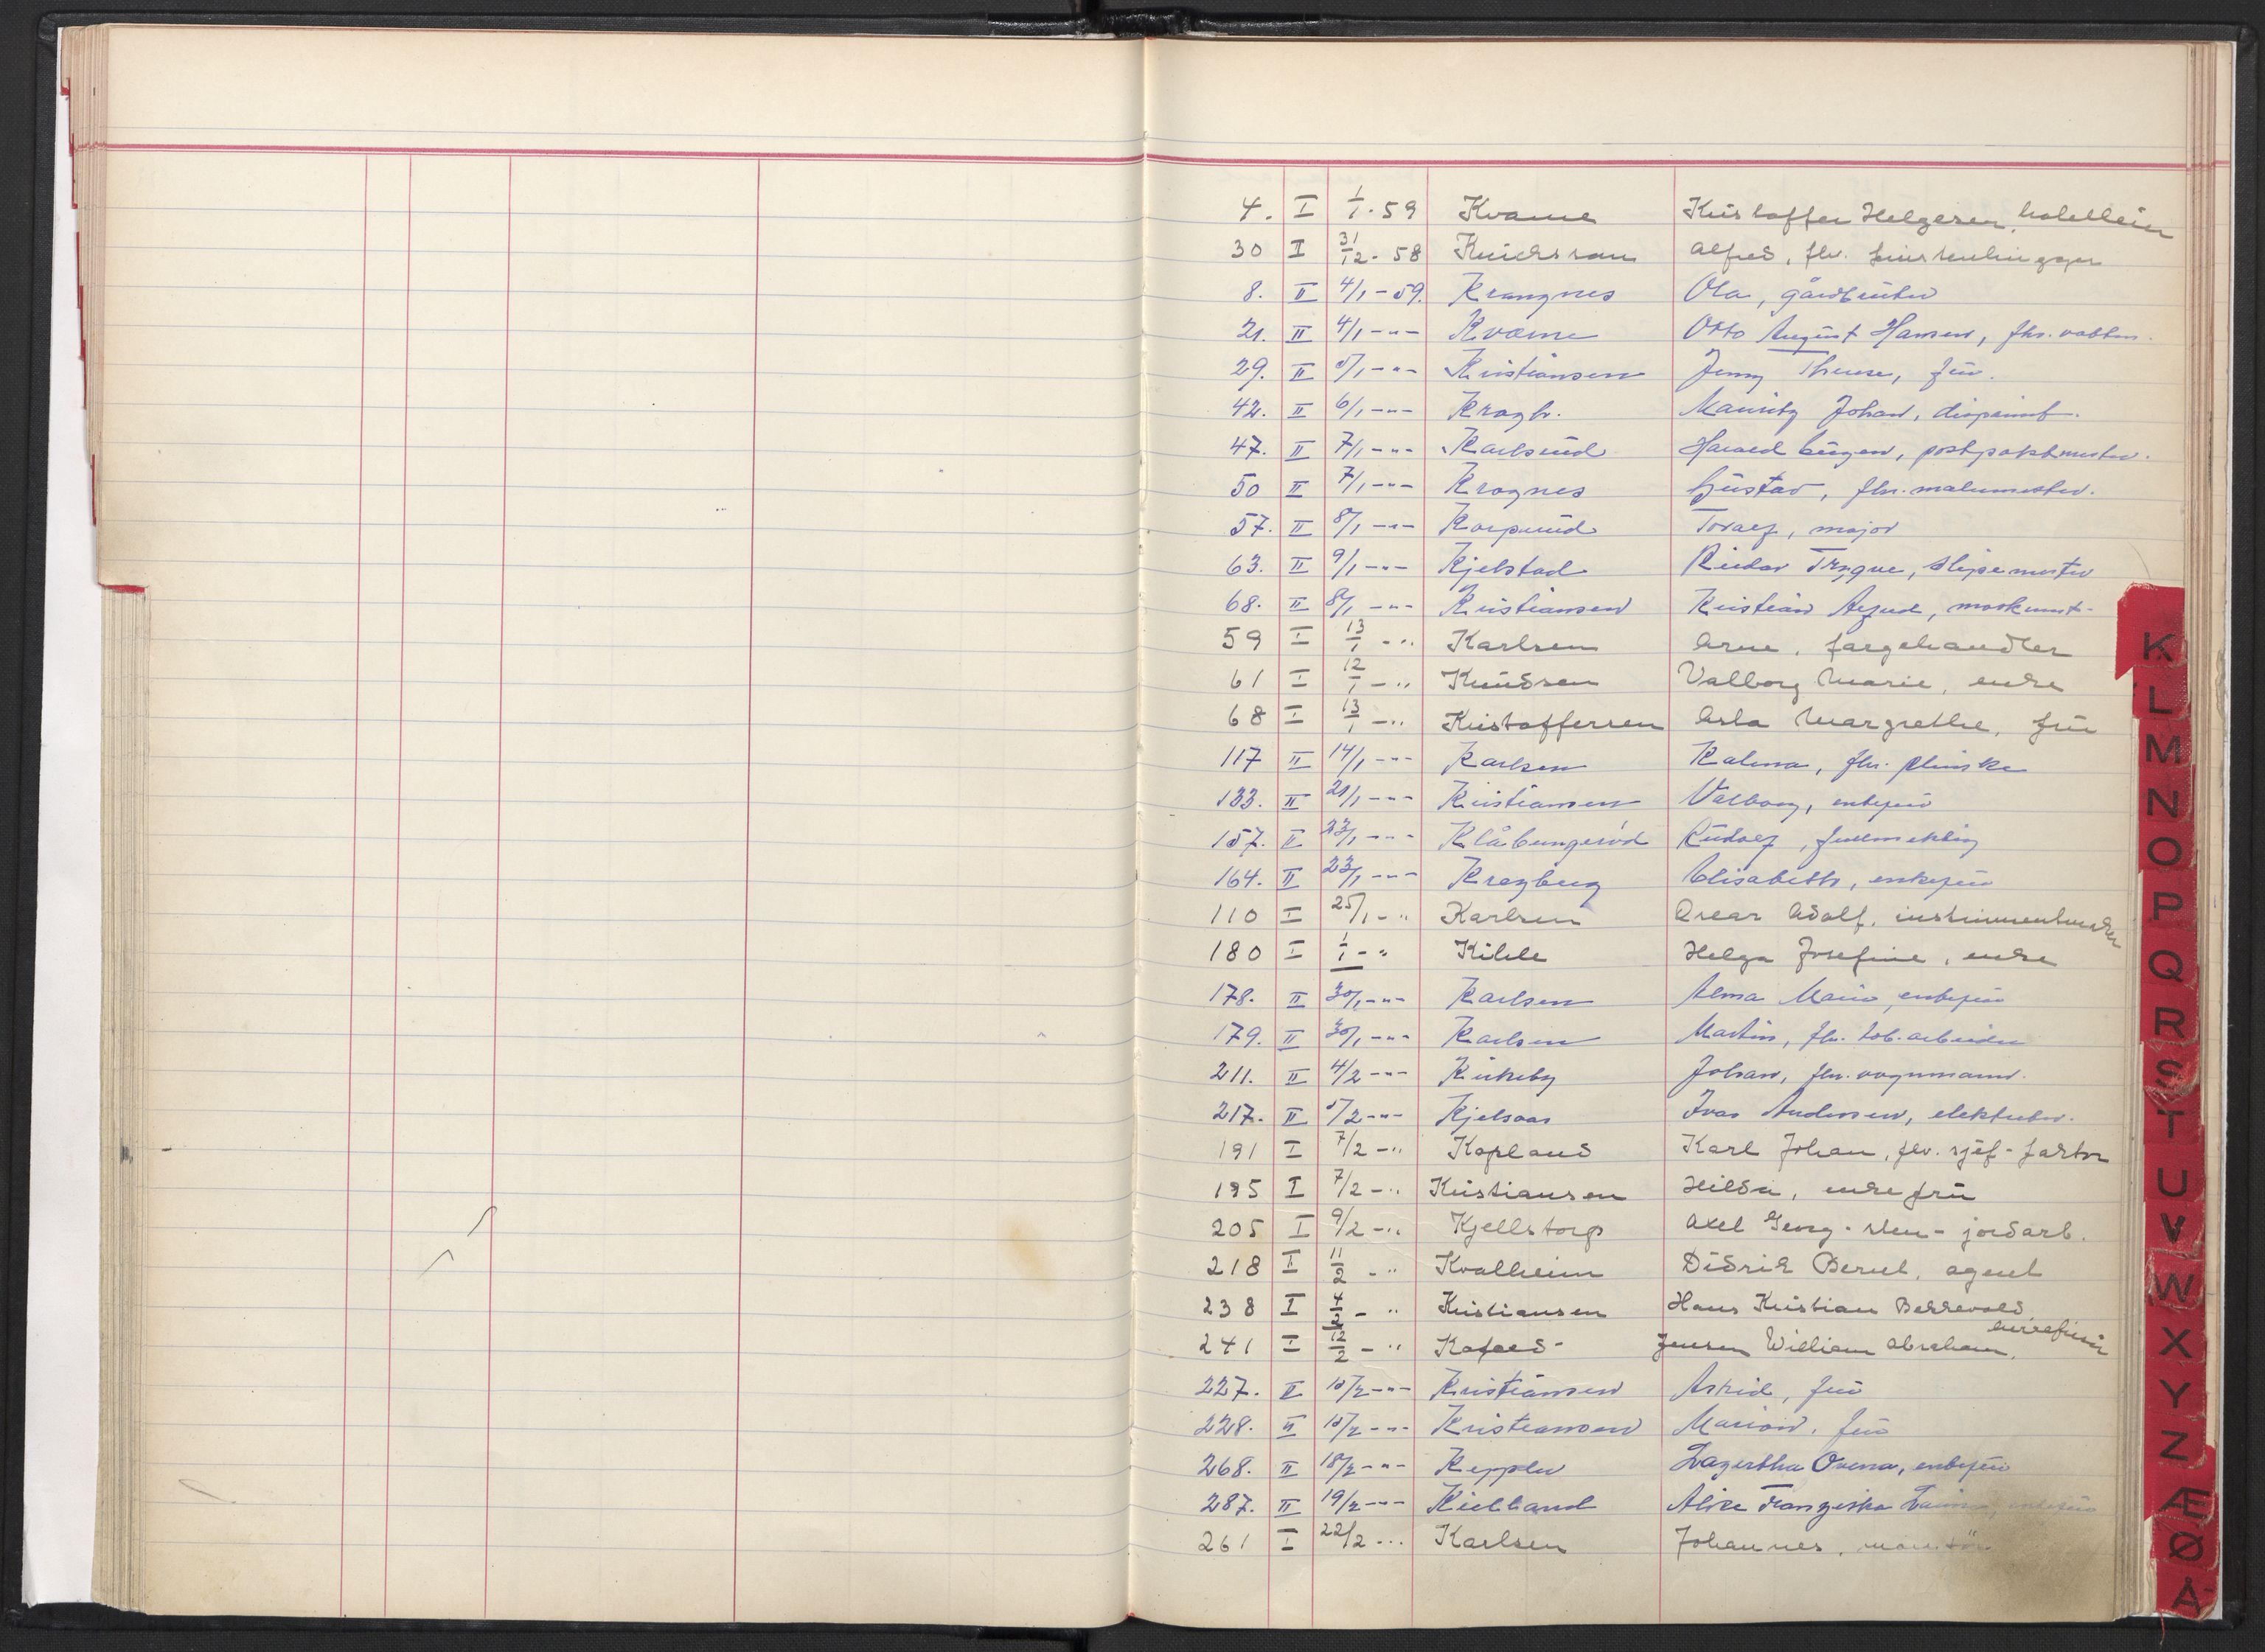 4. I 1/1 · 59 Kvame Kristoffer Helgesen, hotelleier
30 I 31/12 - 58 Knudsson Alfred, fhv.
8. II 4/1 - 59. Krangnes Ola, gårdbruker
21. II 4/1 - " - Kværne Otto August Hansen, fhv.
29. II 5/1 - " - Kristiansen Jenny Therese, fru.
42. II 6/1 - " - Kragh. Mauritz Johan,
47. II 7/1 - " - Karlsrud Harald Eugen, postpakkmester.
50 II 7/1 - " - Krognes Gustav, fhv. malermester.
57. II 8/1 - " - Korperud Toralf, major
63. II 9/1 - " - Kjelstad Reidar Trygve, slipemester
68. II 8/1 - " - Kristiansen Kristian Asfred, maskinist
59 I 13/1 - " Karlsen Arne, fargehandler
61 I 12/1 - " Knudsen Valborg Marie, enke
68 I 13/1 - " Kristoffersen Asla Margrethe, fru
117 II 14/1 - " - Karlsen Kalma, fhv.
133. II 21/1 - " - Kristiansen Valborg, enkefru
157. II 23/1 - " - Klåbungerød Rudolf, fullmektig
164. II 23/1 - " - Kragberg Elisabeth, enkefru
110 I 25/1 - " Karlsen Oscar Adolf, instrumentmaker
180 I 1/1 - " Kihle Helga Josefine, enke
178. II 30/1 - " - Karlsen Alma Marie, enkefru
179. II 30/1 - " - Karlsen Martin, fhv. tob. arbeider
211. II 4/2 - " - Kirkeby Johan, fhv. vognmann.
217. II 5/2 - " - Kjelsaas Ivar Andersen, elektriker.
191 I 7/2 - " Kopland Karl Johan, fhv. sjef-faktor
195 I 7/2 - " Kristiansen Hilda, enkefru
205 I 9/2 - " Kjellstorp Axel Georg - sten - jordarb.
218 I 11/2 - " Kvalheim Didrik Bernt, agent
238 I 4/2 - " Kristiansen Hans Kristian Bekkevold
241 I 12/2 - " Kofoed - Jensen William Abraham,
227. II 10/2 - " - Kristiansen Astrid, fru
228. II 10/2 - " - Kristiansen Marion, fru
268. II 18/2 - " - Keppler Lagertha Ovena, enkefru
287. II 19/2 - " - Kielland Alice Franziska enkefru
261 I 22/2 - " Karlsen Johannes, montør
K
L
M
N
O
P
Q
R
S
T
U
V
W
X
Y
Z
Æ
Ø
Å